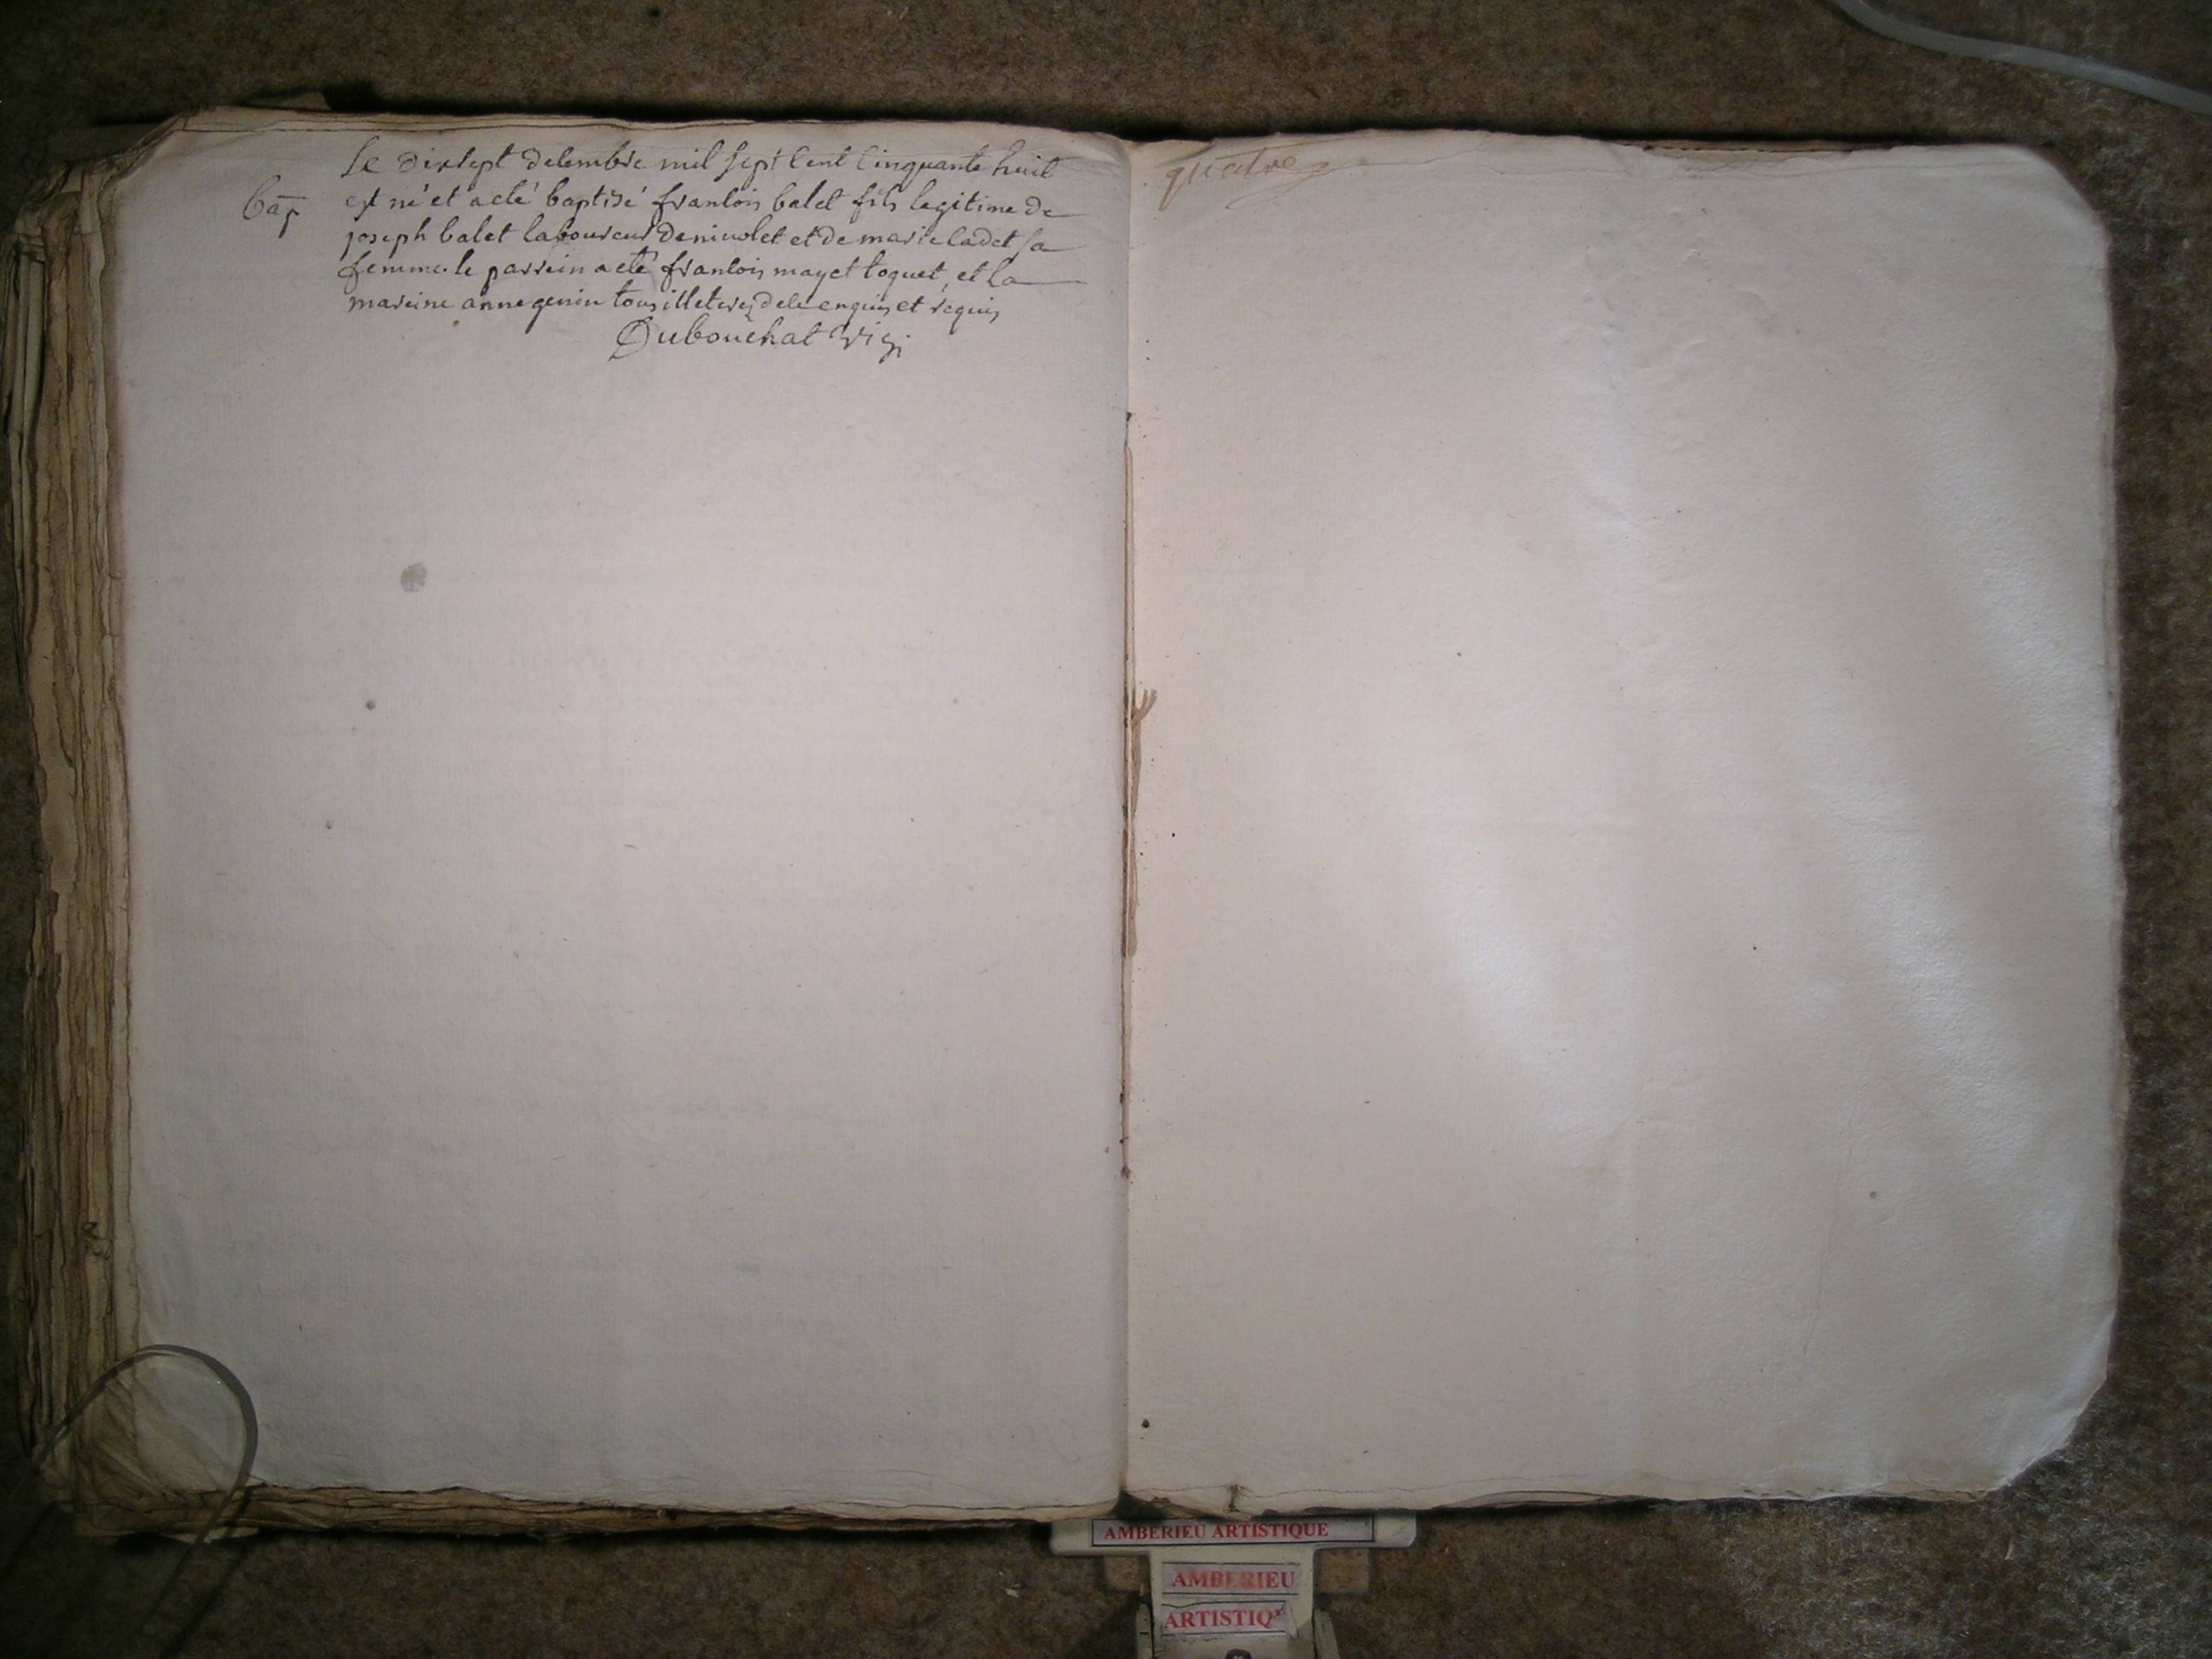 Le dixsept decembre mil sept cent cinquante huit
Bap est né et a eté baptisé francois balet fils legitime de
joseph balet laboureur de nivolet et de marie cadet sa
femme. le parrein a eté francois mayet coquet, et la
mareine anne genin tous illeteres de ce enquis et requis
Dubouchat
quatre
AMBERIEU ARTISTIQUE
AMBERIEU
ARTISTIQ